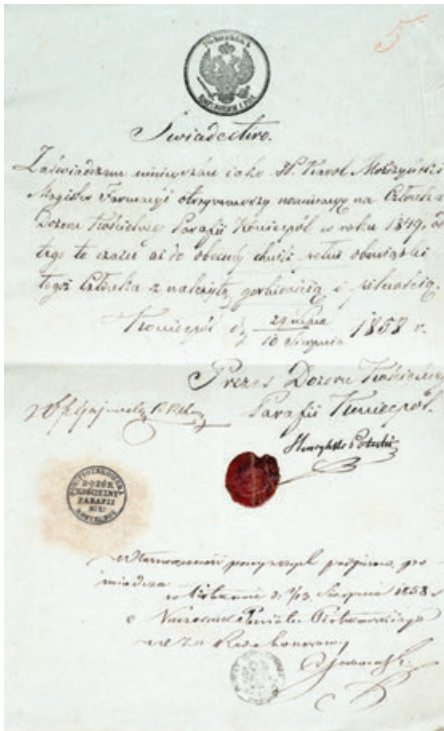 5
Świadectwo.
Zaświadczam niniejszém iako JP. Karol Moszyński
Magister Farmacyi otrzymawszy nominacyę na Członka
Dozoru Kościelnego Parafii Koniecpól w roku 1849, od
tego to czasu aż do obecnéj chwili pełnił obowiązki
tegoż Członka z należytą gorliwością i pilnością.
Koniecpól d. 29 Lipca
10 Sierpnia 1858 r.
Prezes Dozoru Kościelnego
Parafii Koniecpól.
Potocki
DOZÓR
KOŚCIELNY
PARAFII
własnoręczność powyższych podpisów, po
świadcza
d. 1/13 Sierpnia 1858 r
Naczelnik Powiatu Piotrkowskiego
w z. Radca honorowy